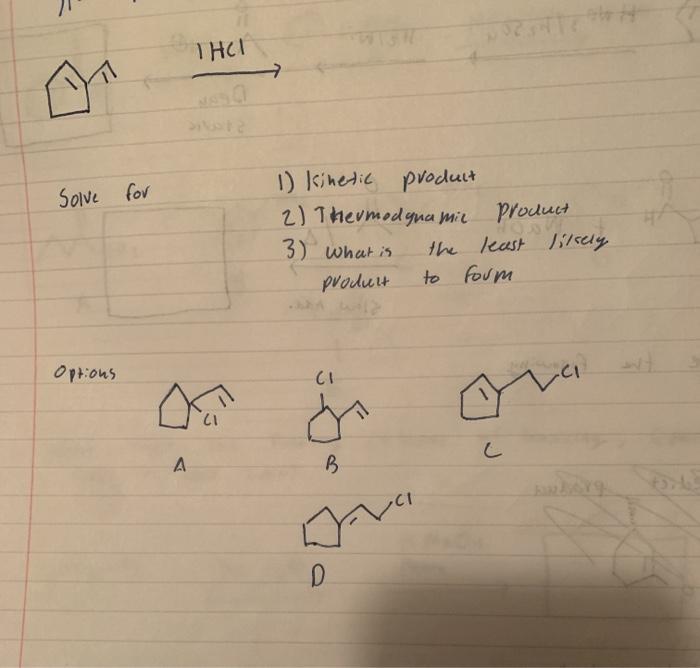 1 HCl
Solve for
1) Kinetic product
2) Thermodynamic product
3) what is the least likely
product to form
Options
Cl
Cl
Cl
A
B
C
Cl
D